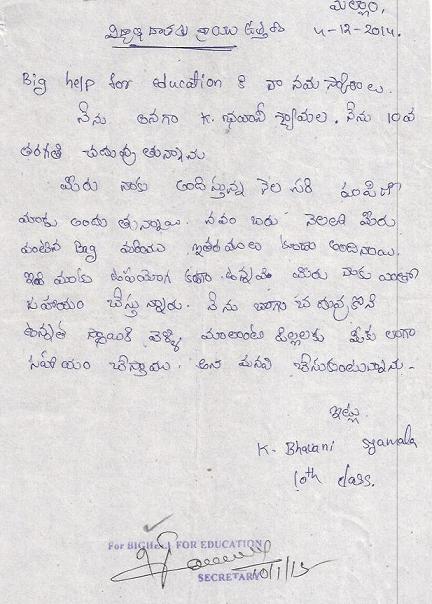 మల్లాం,
విద్యార్థి దాతకు వ్రాయు ఉత్తరం 4-12-2014.
Big help for education కి నా నమస్కారాలు.
నేను అనగా K. భవాని శ్యామల. నేను 10వ
తరగతి చదువుతున్నాను
మీరు నాకు అందిస్తున్న నెల సరి
అందుతున్నాయి. నవంబరు నెలలో మీరు
పంపిన Bag మరియు ఇతరములు కూడా అందినాయి.
ఇవి మాకు ఉపయోగ కరంగా ఉన్నవి మీరు మాకు ఎంతో
సహాయం చేస్తున్నారు. నేను బాగా చదువుకొని
ఉన్నత స్థాయికి వెళ్ళి మాలాంటి పిల్లలకు మీకు లాగా
సహాయం చేస్తాము. అని మనవి చేసుకుంటున్నాను.
ఇట్లు
K. Bhavani syamala
10th class.
For BIG HELP FOR EDUCATION
10/1/15
SECRETARY